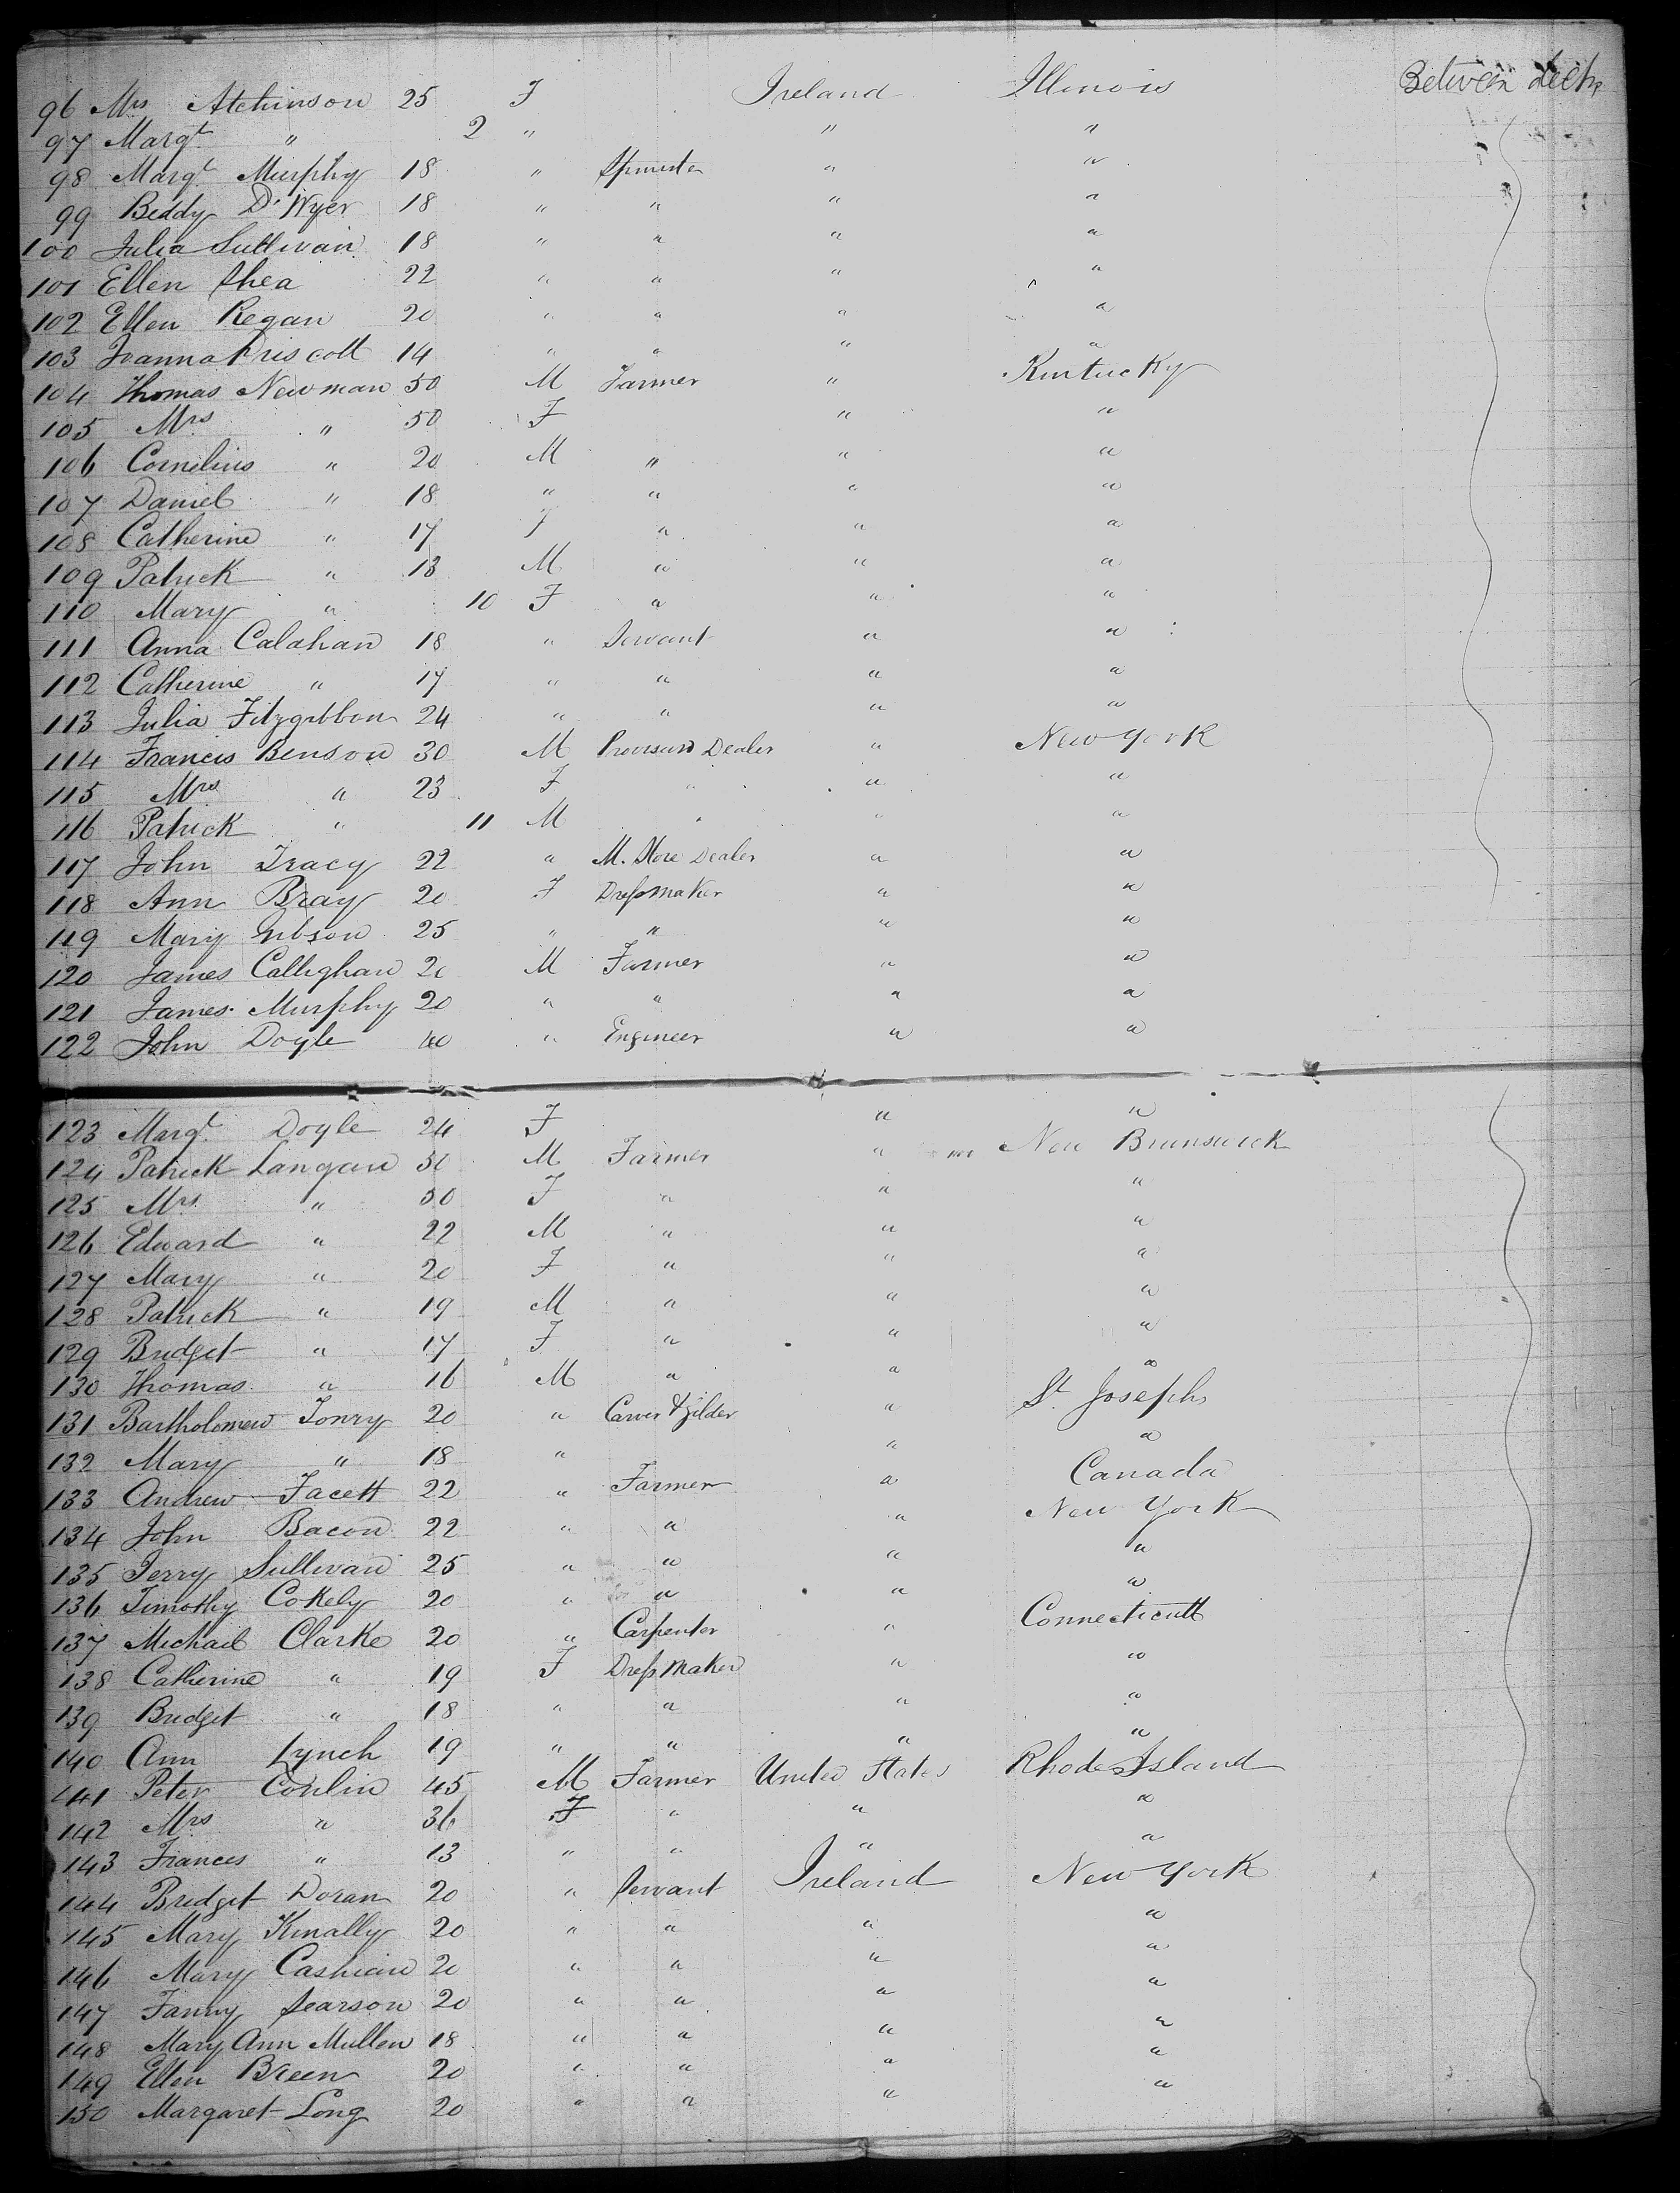 96 Mrs Atchinson 25 F Ireland Illinois Between decks
97 Margt " 2 " " "
98 Margt Murphy 18 " Spinster " "
99 Biddy D'Wyer 18 " " " "
100 Julia Sullivan 18 " " " "
101 Ellen Shea 22 " " " "
102 Ellen Regan 20 " " " "
103 Joanna Driscoll 14 " " " "
104 Thomas Newman 50 M Farmer " Kentucky
105 Mrs " 50 F " "
106 Cornelius " 20 M " " "
107 Daniel " 18 " " " "
108 Catherine " 17 F " " "
109 Patrick " 13 M " " "
110 Mary " 10 F " " "
111 Anna Calahan 18 " Servant " "
112 Catherine " 17 " " " "
113 Julia Fitzgibbon 24 " " " "
114 Francis Benson 30 M Provision Dealer " New York
115 Mrs " 23 F " " "
116 Patrick " 11 M " " "
117 John Tracy 22 " M. Store Dealer " "
118 Ann Bray 20 F Dressmaker " "
119 Mary Gibson 25 " " " "
120 James Callighan 20 M Farmer " "
121 James Murphy 20 " " " "
122 John Doyle 40 " Engineer " "
123 Margt Doyle 24 F " "
124 Patrick Langan 50 M Farmer " New Brunswick
125 Mrs " 50 F " " "
126 Edward " 22 M " " "
127 Mary " 20 F " " "
128 Patrick " 19 M " " "
129 Bridget " 17 F " " "
130 Thomas " 16 M " " "
131 Bartholomew Tonry 20 " Carver & Gilder " St Josephs
132 Mary " 18 " " "
133 Andrew Facett 22 " Farmer " Canada
134 John Bacon 22 " " " New York
135 Jerry Sullivan 25 " " " "
136 Timothy Cokely 20 " " " "
137 Michael Clarke 20 " Carpenter " Connecticutt
138 Catherine " 19 F Dress Maker " "
139 Bridget " 18 " " " "
140 Ann Lynch 19 " " " "
141 Peter Conlin 45 M Farmer United States Rhode Island
142 Mrs " 36 F " " "
143 Frances " 13 " " " "
144 Bridget Doran 20 " Servant Ireland New York
145 Mary Kinally 20 " " " "
146 Mary Cashian 20 " " " "
147 Fanny Searson 20 " " " "
148 Mary Ann Mullen 18 " " " "
149 Ellen Breen 20 " " " "
150 Margaret Long 20 " " "